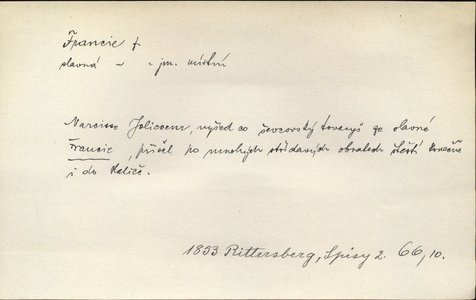 Francie f
slavná ~ - jm. místní
Narcisse Jolicoeur, vyšed co ševcovský tovaryš ze slavné
Francie, přišel po mnohých střídavých obratech štěstí konečně
i do Halič.
1853 Rittersberg, Spisy 2. 66, 10.